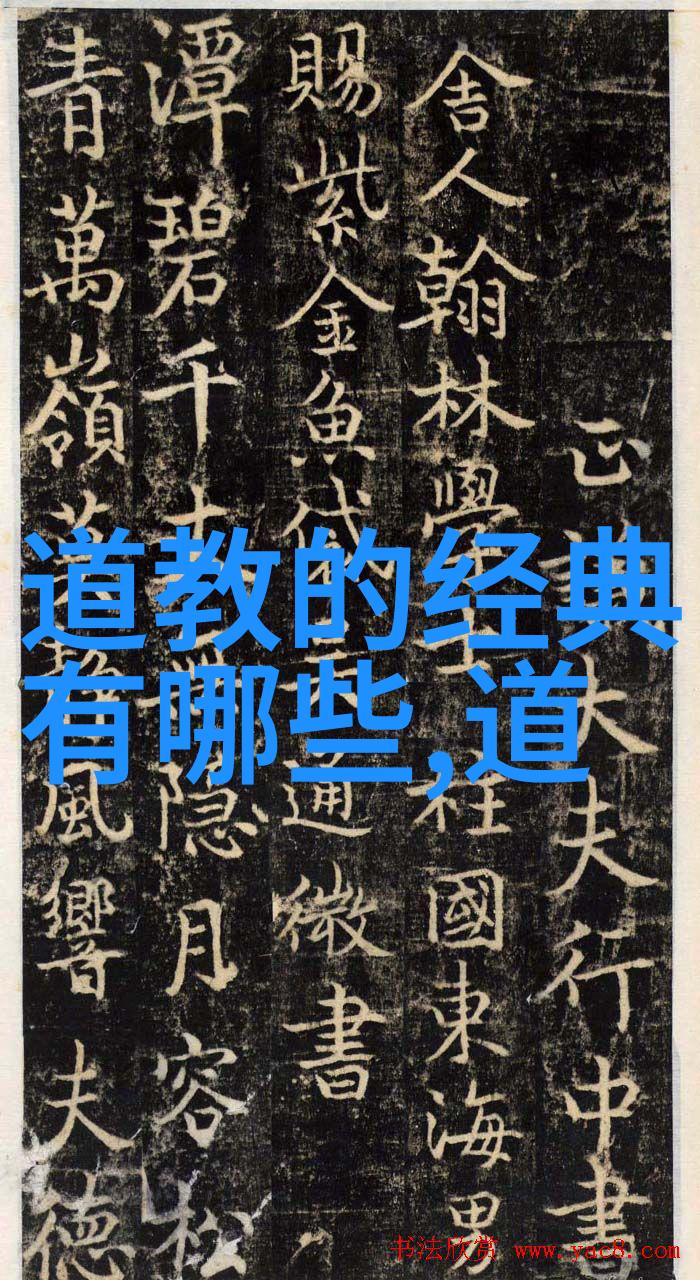 正議大夫行中書
舍人翰林學士柱國東海男
賜紫金魚袋通微書
潭碧千隐月容松
青萬嶺風響夫德
道教的经典
有哪些,道
书法欣赏 www.yac8.com